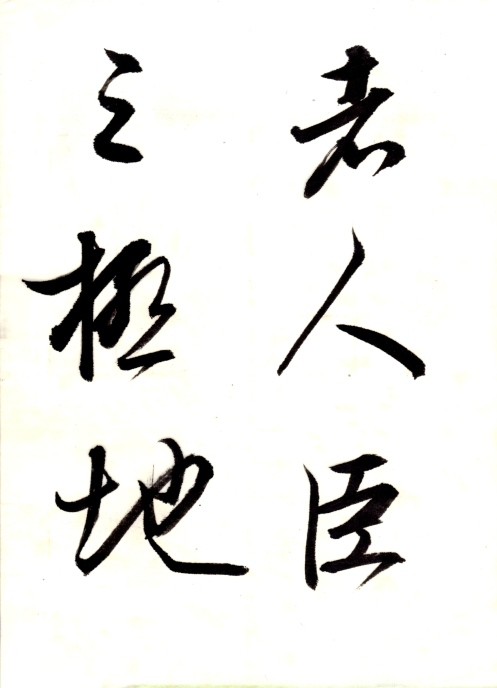 者人臣
之極地